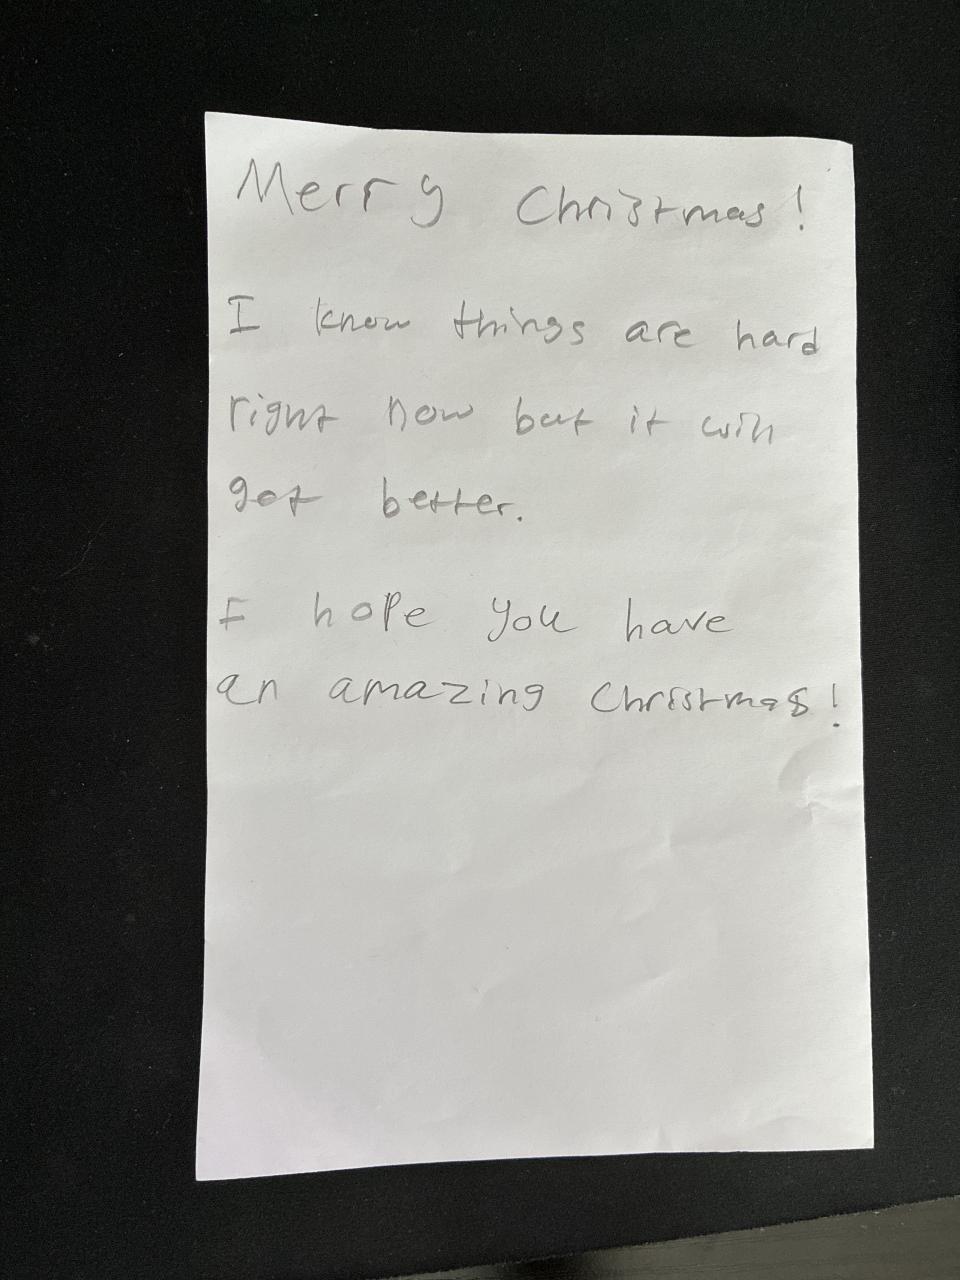 Merry Christmas!
I know things are hard
right now but it will
get better.
I hope you have
an amazing Christmas!